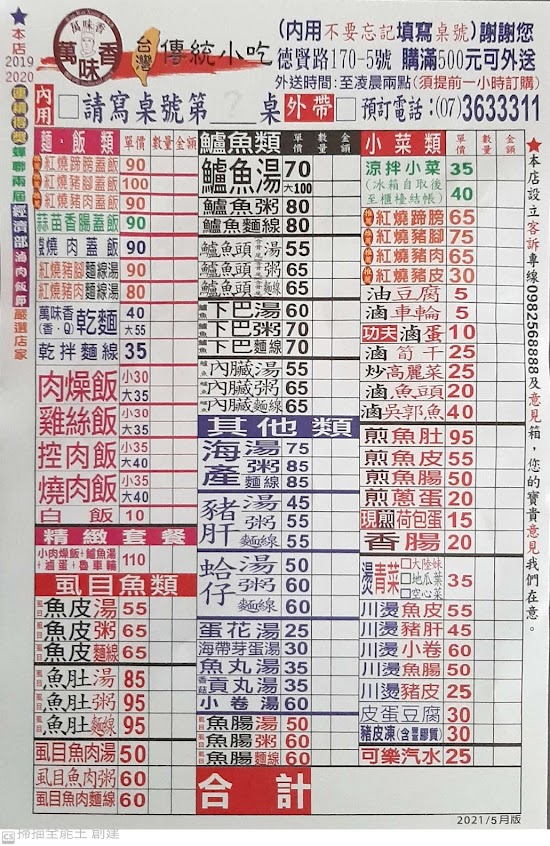 ★本店2019 2020連續得獎 蟬聯兩屆 經濟部滷肉飯節嚴選店家
萬味香
萬味香
台灣傳統小吃
(內用不要忘記填寫桌號)謝謝您
德賢路170-5號 購滿500元可外送
外送時間:至凌晨兩點(須提前一小時訂購)
內用 □請寫桌號第__?__桌 外帶 □預訂電話:(07)3633311
麵・飯類 單價 數量 金額
紅燒蹄膀蓋飯 90
紅燒豬腳蓋飯 100
紅燒豬肉蓋飯 90
蒜苗香腸蓋飯 90
燒肉蓋飯 90
紅燒豬腳麵線湯 90
紅燒豬肉麵線湯 80
萬味香(香・Q)乾麵 40 大55
乾拌麵線 35
肉燥飯 小30 大35
雞絲飯 小30 大35
控肉飯 小35 大40
燒肉飯 小35 大40
白飯 10
精緻套餐
小肉燥飯+鱸魚湯+滷蛋+魯車輪 110
虱目魚類
虱目魚皮湯 55
虱目魚皮粥 65
虱目魚皮麵線 65
虱目魚肚湯 85
虱目魚肚粥 95
虱目魚肚麵線 95
虱目魚肉湯 50
虱目魚肉粥 60
虱目魚肉麵線 60
鱸魚類 單價 數量 金額
鱸魚湯 70 大100
鱸魚粥 80
鱸魚麵線 80
鱸魚頭湯 55
鱸魚頭粥 65
鱸魚頭麵線 65
鱸魚下巴湯 60
鱸魚下巴粥 70
鱸魚下巴麵線 70
鱸魚內臟湯 55
鱸魚內臟粥 65
鱸魚內臟麵線 65
其他類
海產湯 75
粥 85
麵線 85
豬肝湯 45
粥 55
麵線 55
蛤仔湯 50
粥 60
麵線 60
蛋花湯 25
海帶芽蛋湯 30
魚丸湯 35
香菇貢丸湯 35
小卷湯 60
虱目魚腸湯 50
虱目魚腸粥 60
虱目魚腸麵線 60
合計
小菜類 單價 數量 金額
涼拌小菜 35
(冰箱自取後至櫃檯結帳) 40
紅燒蹄膀 65
紅燒豬腳 75
紅燒豬肉 65
紅燒豬皮 30
油豆腐 5
滷車輪 5
功夫滷蛋 10
滷筍干 25
炒高麗菜 25
滷魚頭 20
滷吳郭魚 40
煎魚肚 95
煎魚皮 55
煎魚腸 50
煎蔥蛋 20
現煎荷包蛋 15
香腸 20
燙青菜 □大陸妹 □地瓜葉 □空心菜 35
川燙魚皮 55
川燙豬肝 45
川燙小卷 60
川燙魚腸 50
川燙豬皮 25
皮蛋豆腐 30
豬皮凍(含豐膠質) 30
可樂汽水 25
★本店設立客訴專線0982568888及意見箱,您的寶貴意見我們在意。
2021/5月版
CS 掃描全能王 創建